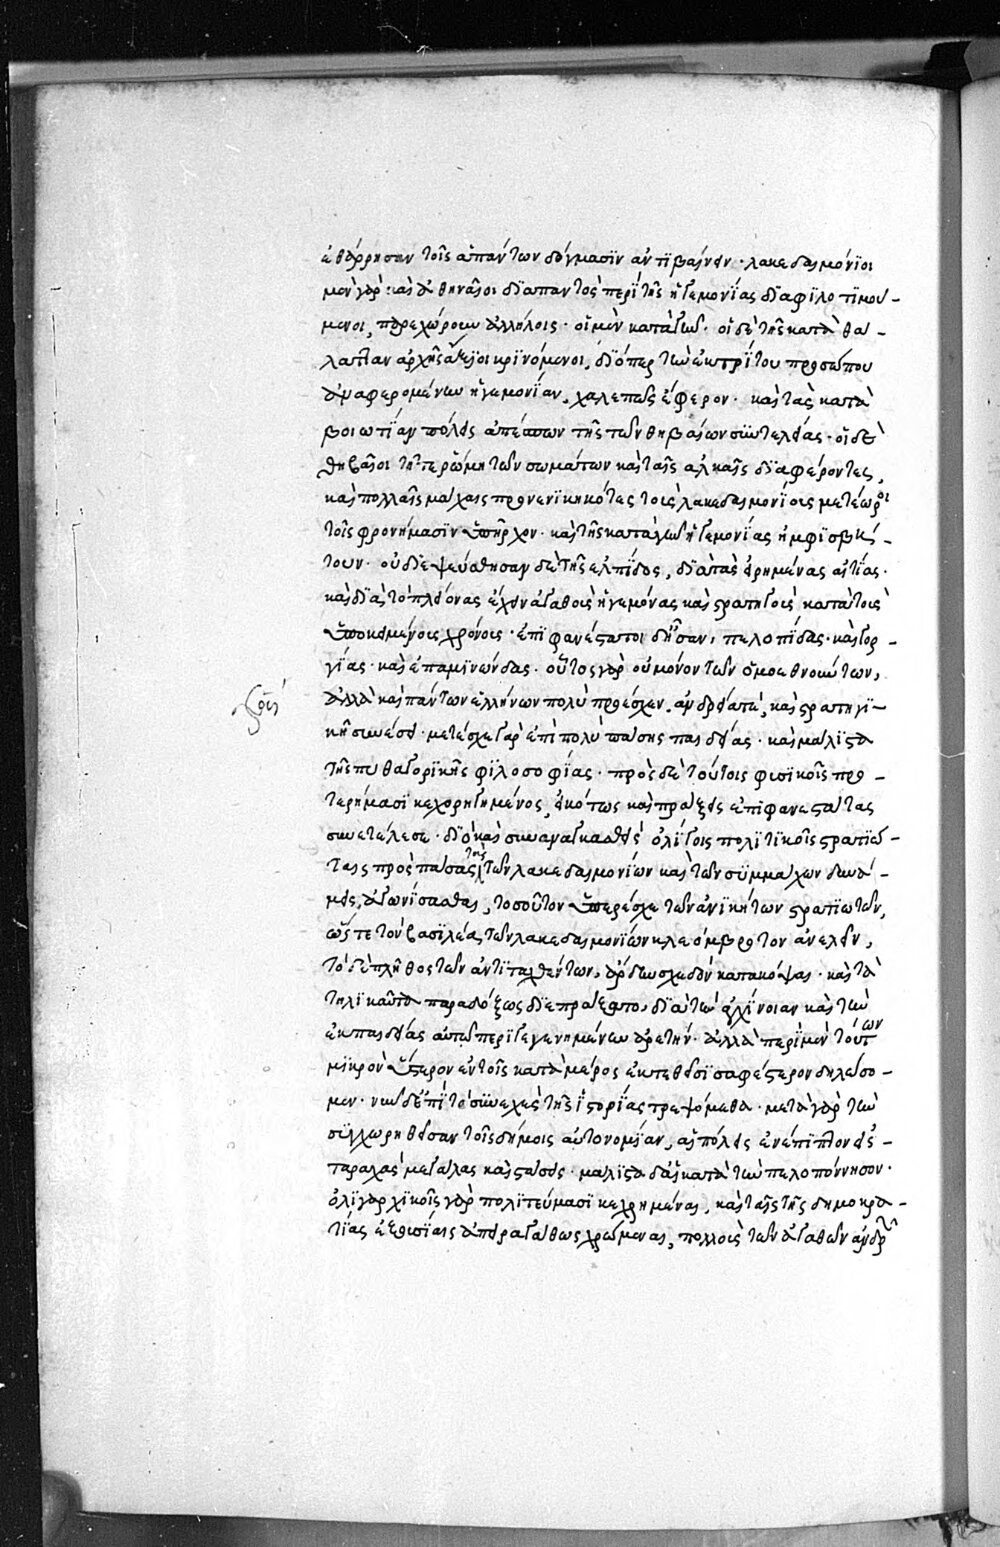 ἐθάρρησαν τοῖς ἁπάντων δόγμασϊν ἀντϊβαίνειν· λακεδαιμόνϊοι
μὲν γὰρ καὶ ἀθηναῖοι δϊαπαντὸς περὶ τῆς ἡγεμονΐας δϊαφϊλοτϊμου-
μενοι, παρεχώρουν ἀλλήλοις· οἱ μὲν κατὰ γῆν· οἱ δὲ τῆς κατὰ θα-
λατταν ἀρχῆς ἄξϊοι κρϊνόμενοι, δϊόπερ τὴν ἐκ τρΐτου προσώπου
ἀναφερομένην ἡγεμονΐαν, χαλεπῶς ἔφερον· καὶ τὰς κατὰ
βοιωτΐαν πόλεις ἀπέσπων τῆς τῶν θηβαίων σϋντελείας· οἱ δὲ
θηβαῖοι τῆ τε ῥώμη τῶν σωμάτων καὶ ταῖς ἀλκαῖς δϊαφέροντες,
καὶ πολλαῖς μάχαις προνενικηκότες τοὺς λακεδαιμονΐους μετέωροι
τοῖς φρονήμασϊν ὑπῆρχον· καὶ τῆς κατὰ γῆν ἡγεμονΐας ἠμφϊσβή-
τουν· οὐ δϊεψεύσθησαν δὲ τῆς ἐλπΐδος, δϊὰ τὰς εἰρημένας αἰτΐας·
καὶ δϊὰ τὸ πλείονας ἔχειν ἀγαθοὺς ἡγεμόνας καὶ στρατηγοὺς κατὰ τοὺς
ὑποκειμένους χρόνους· ἐπϊφανέστατοι δ' ἦσαν, πελοπΐδας· καὶ γορ-
γΐας· καὶ ἐπαμϊνώνδας· οὗτος γὰρ οὐ μόνον τῶν ὁμοεθνούντων,
ἀλλὰ καὶ πάντων ἑλλήνων πολὺ προέσχεν ἀνδρείᾳ τε, καὶ στρατηγϊ-
κῆ συνέσει· μετέσχε γὰρ ἐπὶ πολὺ πάσης παιδείας· καὶ μάλϊστα
τῆς πυθαγορϊκῆς φϊλοσοφΐας· πρὸς δὲ τούτοις φυσϊκοῖς προ-
τερήμασϊ κεχορηγημένος, εἰκότως καὶ πράξεις ἐπϊφανεστάτας
συνετέλεσε· δϊὸ καὶ συναναγκασθεὶς ὀλΐγοις πολϊτϊκοῖς στρατϊώ-
ταις πρὸς πάσας τὰς τῶν λακεδαιμονίων καὶ τῶν σϋμμάχων δυνά-
μεις, ἀγωνΐσασθαι, τοσοῦτον ὑπερέσχε τῶν ἀνϊκήτων στρατϊωτῶν,
ὥστε τὸν βασϊλέα τῶν λακεδαιμονϊων κλεόμβροτον ἀνελεῖν,
τὸ δὲ πλῆθος τῶν ἀντϊταχθέντων, ἄρδην σχεδὸν κατακόψαι· καὶ τὰ
τηλϊκαῦτα παραδόξως δϊεπράξατο, δϊὰ τὴν ἀγχΐνοιαν καὶ τὴν
ἐκ παιδείας αὐτῶ περϊγεγενημένην ἀρετήν· ἀλλὰ περὶ μὲν τούτων
μϊκρὸν ὕστερον ἐν τοῖς κατὰ μέρος ἐκτεθεῖσϊ σαφέστερον δηλώσο-
μεν· νῦν δ' ἐπὶ τὸ σϋνεχὲς τῆς ἱστορΐας τρεψόμεθα· μετὰ γὰρ τὴν
σϋγχωρηθεῖσαν τοῖς δήμοις αὐτονομΐαν, αἱ πόλεις ἐνέπϊπτον εἰς
ταραχὰς μεγάλας καὶ στάσεις· μάλϊστα δ' αἱ κατὰ τὴν πελοπόννησον·
ὀλϊγαρχϊκοῖς γὰρ πολϊτεύμασϊ κεχρημέναι, καὶ ταῖς τῆς δημοκρα-
τΐας ἐξουσΐαις ἀπειραγάθως χρώμεναι, πολλοὺς τῶν ἀγαθῶν ἀνδρῶν